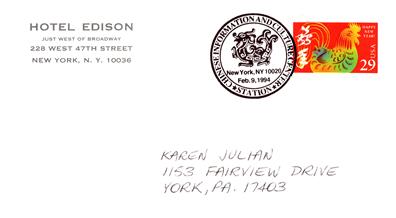 HOTEL EDISON
JUST WEST OF BROADWAY
228 WEST 47TH STREET
NEW YORK, N. Y. 10036
CHINESE INFORMATION AND CULTURE CENTER
New York, NY 10020
Feb. 9, 1994
STATION
HAPPY
NEW
YEAR!
USA
29
KAREN JULIAN
1153 FAIRVIEW DRIVE
YORK, PA. 17403